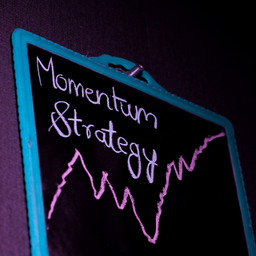 Momentum
Strategy